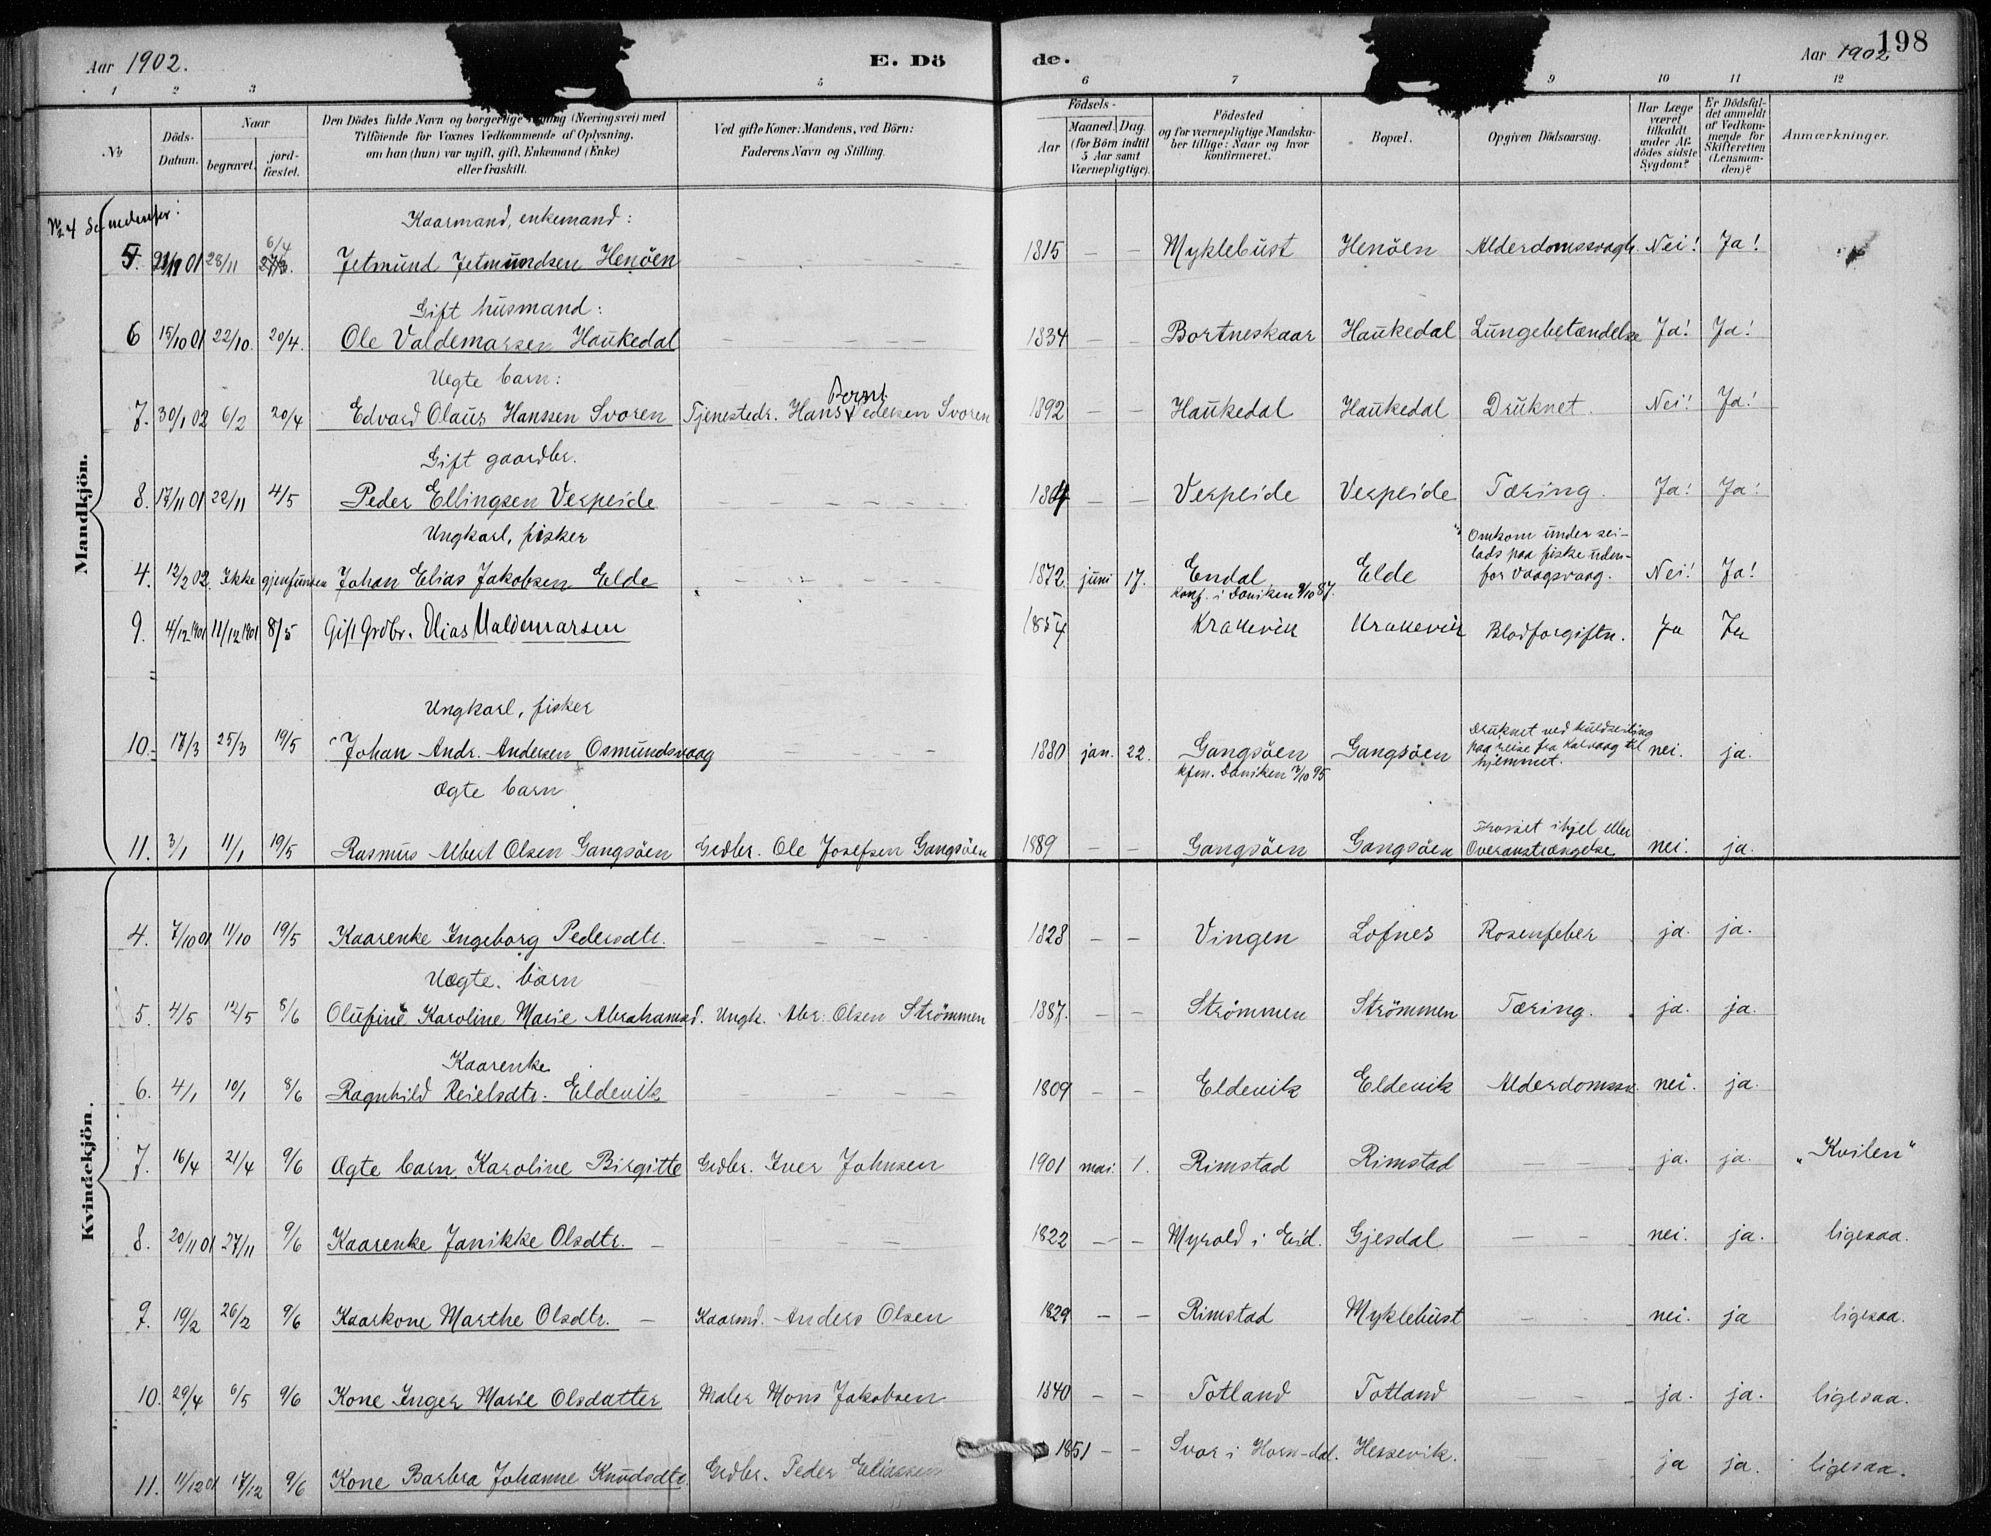 Aar 1902.
E. Dö
de.
Aar 1902
198
1 2 3 5 6 7 9 10 11 12
No
Döds-Datum.
Naar
begravet.
jord-fæstet.
Den Dödes fulde Navn og borgerlige (Næringsvei) med
Tilföiende for Voxnes Vedkommende af Oplysning,
om han (hun) var ugift, gift, Enkemand (Enke)
eller fraskilt.
Ved gifte Koner: Mandens, ved Börn:
Faderens Navn og Stilling.
Födsels-
Aar
Maaned. Dag.
(for Börn indtil
5 Aar samt
Værnepligtige).
Födested
og for værnepligtige Mandska-
ber tillige: Naar og hvor
konfirmeret.
Bopæl.
Opgiven Dödsaarsag.
Har Læge
været
tilkaldt
under Af-
dödes sidste
Sygdom?
Er Dödsfal-
det anmeldt
af Vedkom-
mende for
Skifteretten
(Lensman-
den)?
Anmærkninger.
Mandkjön.
No 4 se nedenfor!
Kaarmand, enkemand:
5. 01 28/11 6/4 Jetmund Jetmundsen Henöen — — — 1815 — — Myklebust Henöen Alderdomssvagh. Nei! Ja!
Gift husmand:
6 15/10 01 22/10. 20/4. Ole Valdemarsen Haukedal — — — — 1834 — — Bortneskaar Haukedal Lungebetændelse Ja! Ja!
Uegte barn:
Bernt
7. 30/1 02 6/2 20/4 Edvard Olaus Hansen Svoren Tjenestedr. Hans Pedersen Svoren 1892 — — Haukedal Haukedal Druknet. Nei! Ja!
Gift gaardbr.
8. 17/11 01 22/11 4/5 Peder Ellingsen Verpeide — — — — — — Verpeide Verpeide Tæring. Ja! Ja!
Ungkarl, fisker
Omkom under sei-
lads paa fiske uden-
for Vaagsvaag.
4. 12/2 02. Ikke gjenfunden Johan Elias Jakobsen Elde — — 1872. juni 17. Endal Elde Nei! Ja!
konf. i Daviken 9/10 87.
9. 4/12 1901 11/12 1901 8/5 Gift Grdbr. Elias Valdemarsen 1854 Krakevik Krakevik Blodforgiftn. Ja Ja
Ungkarl, fisker
Druknet ved kuldseiling
paa reise fra Kalvaag til
hjemmet.
10. 18/3 25/3 19/5 Johan Andr. Andersen Osmundsvaag — — — 1880 jan. 22. Gangsöen Gangsöen nei. ja.
kfm. Daviken 13/10 95
Ægte barn
11. 3/1 11/1 19/5 Rasmus Albert Olsen Gangsöen Grdbr. Ole Josefsen Gangsöen 1889 — — Gangsöen Gangsöen ihjel eller
Overanstrængelse nei. ja.
Kvindekjön.
4. 7/10 01 11/10 19/5 Kaarenke Ingeborg Pedersdtr. — — — — 1828 — — Vingen Lofnes Rosenfeber ja. ja.
Uægte. barn
5. 4/5 12/5 8/6 Olufine Karoline Marie Abrahamsd. Ungk. Abr. Olsen Strömmen 1887. — — Strömmen Strömmen Tæring. ja. ja.
Kaarenke
6. 4/1 10/1 8/6 Ragnhild Reielsdtr. Eldevik — — — — 1809 — — Eldevik Eldevik Alderdomssv. nei. ja.
7. 16/4 21/4 9/6 Ægte barn, Karoline Birgitte Grdbr. Iver Johnsen 1901 mai 1. Rimstad Rimstad — — ja. ja. „Kvilen"
8. 20/11 01 27/11 9/6 Kaarenke Janikke Olsdtr. — — — — 1822 — — Myrold i Eid. Gjesdal — — nei. ja. ligesaa.
9. 19/2 26/2 9/6 Kaarkone Marthe Olsdtr. — Kaarmd. Anders Olsen 1829 — — Rimstad Myklebust nei. ja ligesaa.
10. 29/4 6/5 9/6 Kone Inger Marie Olsdatter Maler Mons Jakobsen 1840 — — Totland Totland — — ja. ja. ligesaa.
11. 11/12 01 17/12 9/6 Kone Barbra Johanne Knudsdtr. Grdbr. Peder Eliassen 1851 — — Svor i Horn-dal. Hessevik. — ja ja. ligesaa.